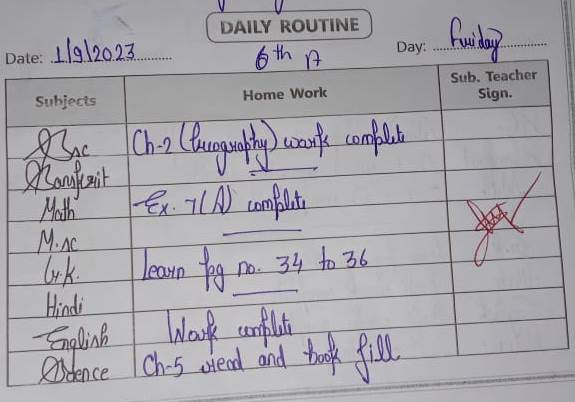 DAILY ROUTINE
Date: 1/9/2023
6th A
Day: Friday
Subjects
Home Work
Sub. Teacher
Sign.
Ch-2 (Geography) work complete
Math
Ex. 7(A) complete
M.sc
G.K.
Learn pg no. 34 to 36
Hindi
English
Work complete
Ch-5 read and book fill